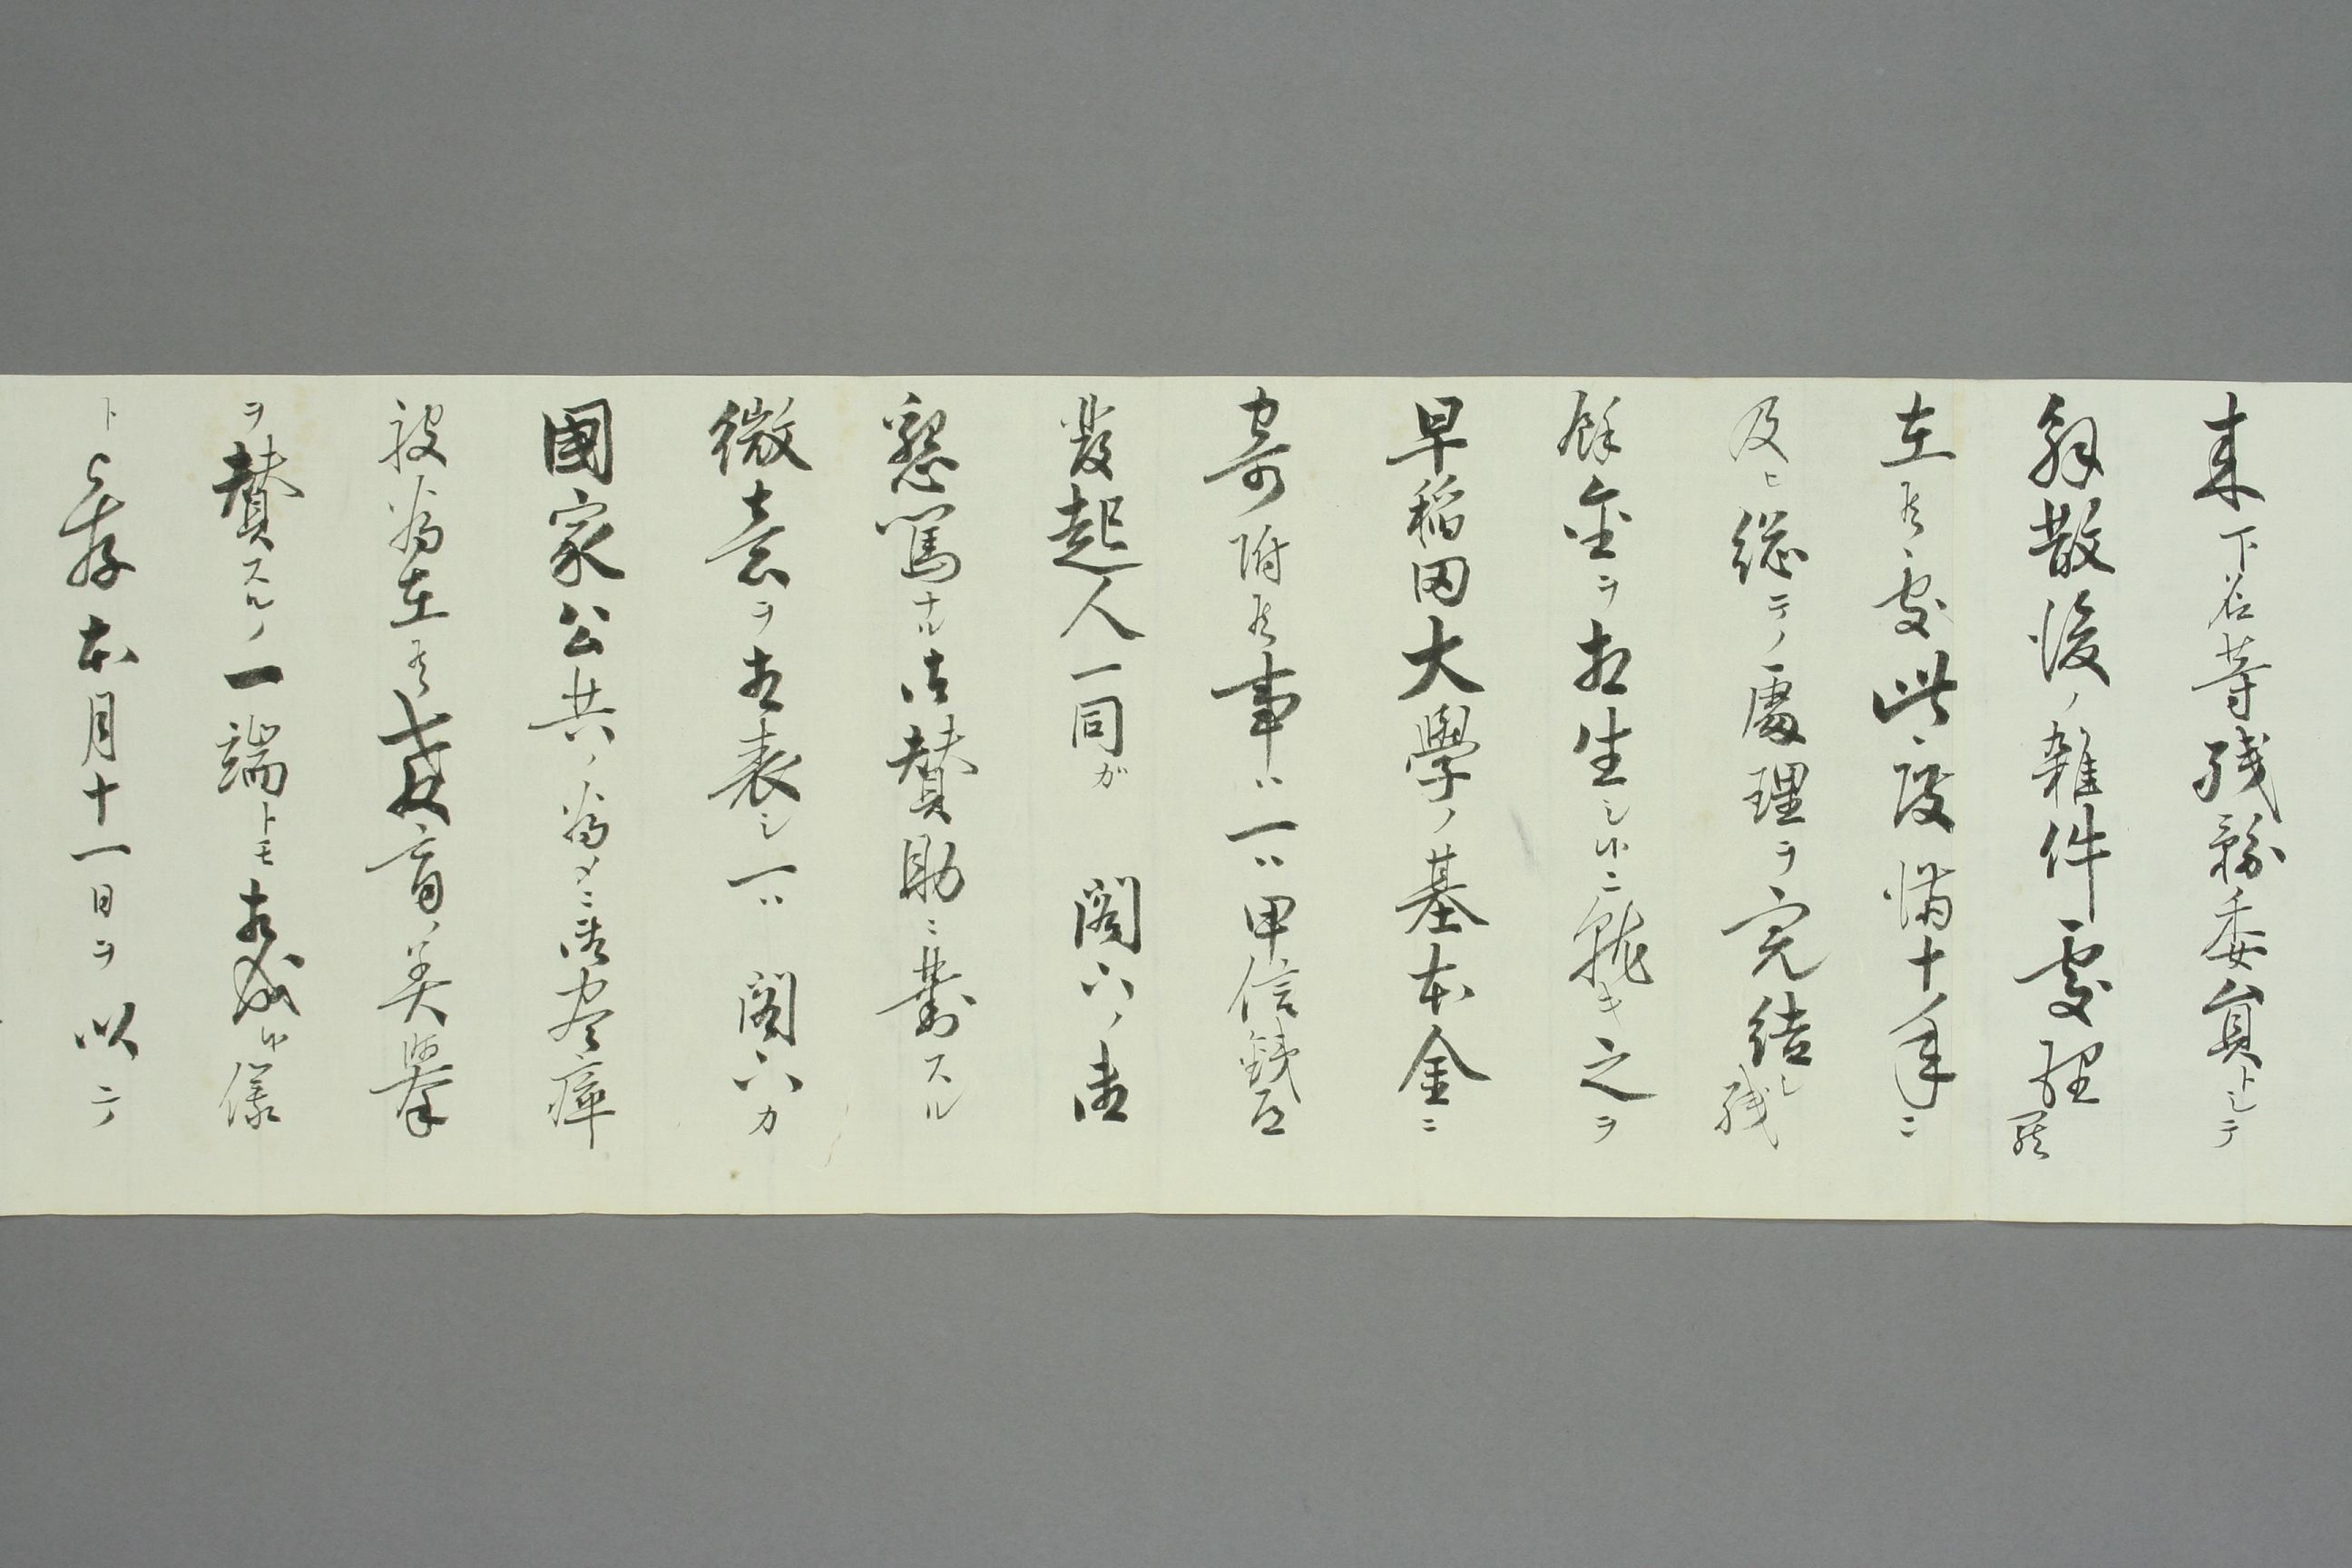 来下名等残務委員トシテ
解散後ノ雑件處理罷
在候處此度満十ヶ年ニ
及ヒ総テノ處理ヲ完結シ残
餘金ヲ相生シ候ニ就キ之ヲ
早稲田大學ノ基本金ニ
寄附候事ハ一ハ甲信鉄道
發起人一同が 閣下ノ御
懇篤ナル御賛助ニ對スル
微意ヲ相表シ一ハ 閣下カ
國家公共ノ為メニ御尽瘁
被為在候教育ノ美舉
ヲ賛スルノ一端トモ相成候儀
ト存本月十一日ヲ以テ